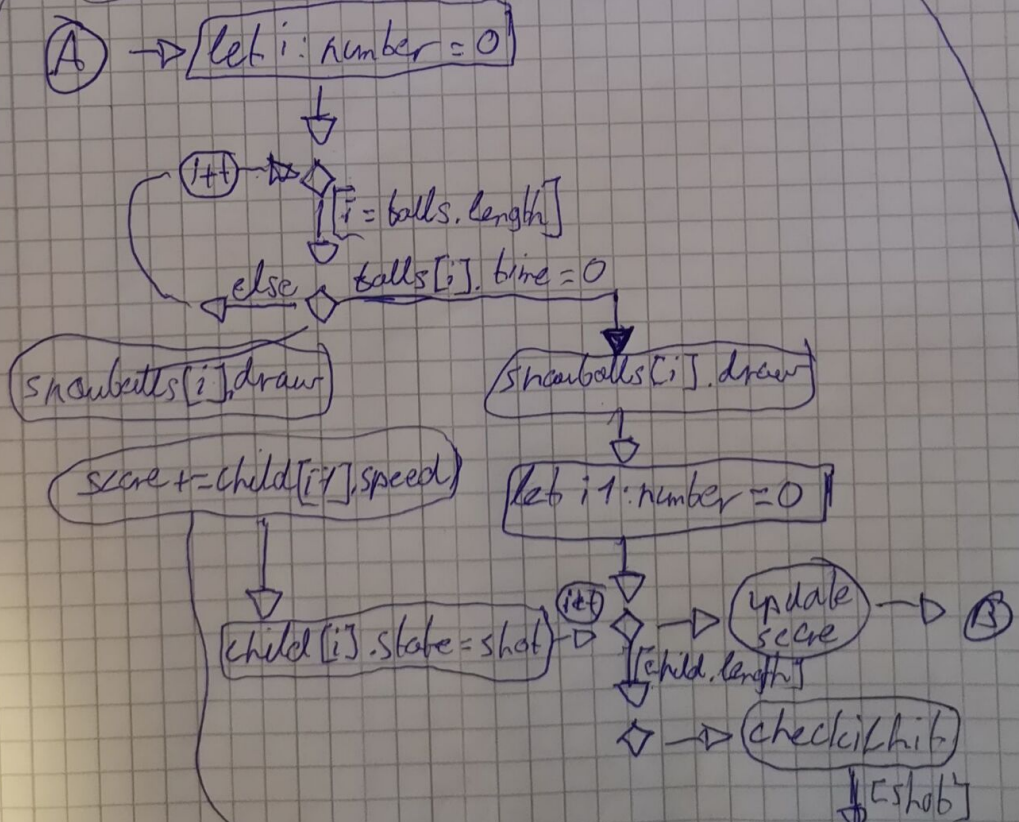 A
let i: number = 0
i++
[i = balls.length]
else
balls[i].time = 0
snowballs[i].draw
snowballs[i].draw
score += child[i1].speed
let i1: number = 0
i++
update
score
B
child[i].state = shot
[child.length]
check if hit
[shot]